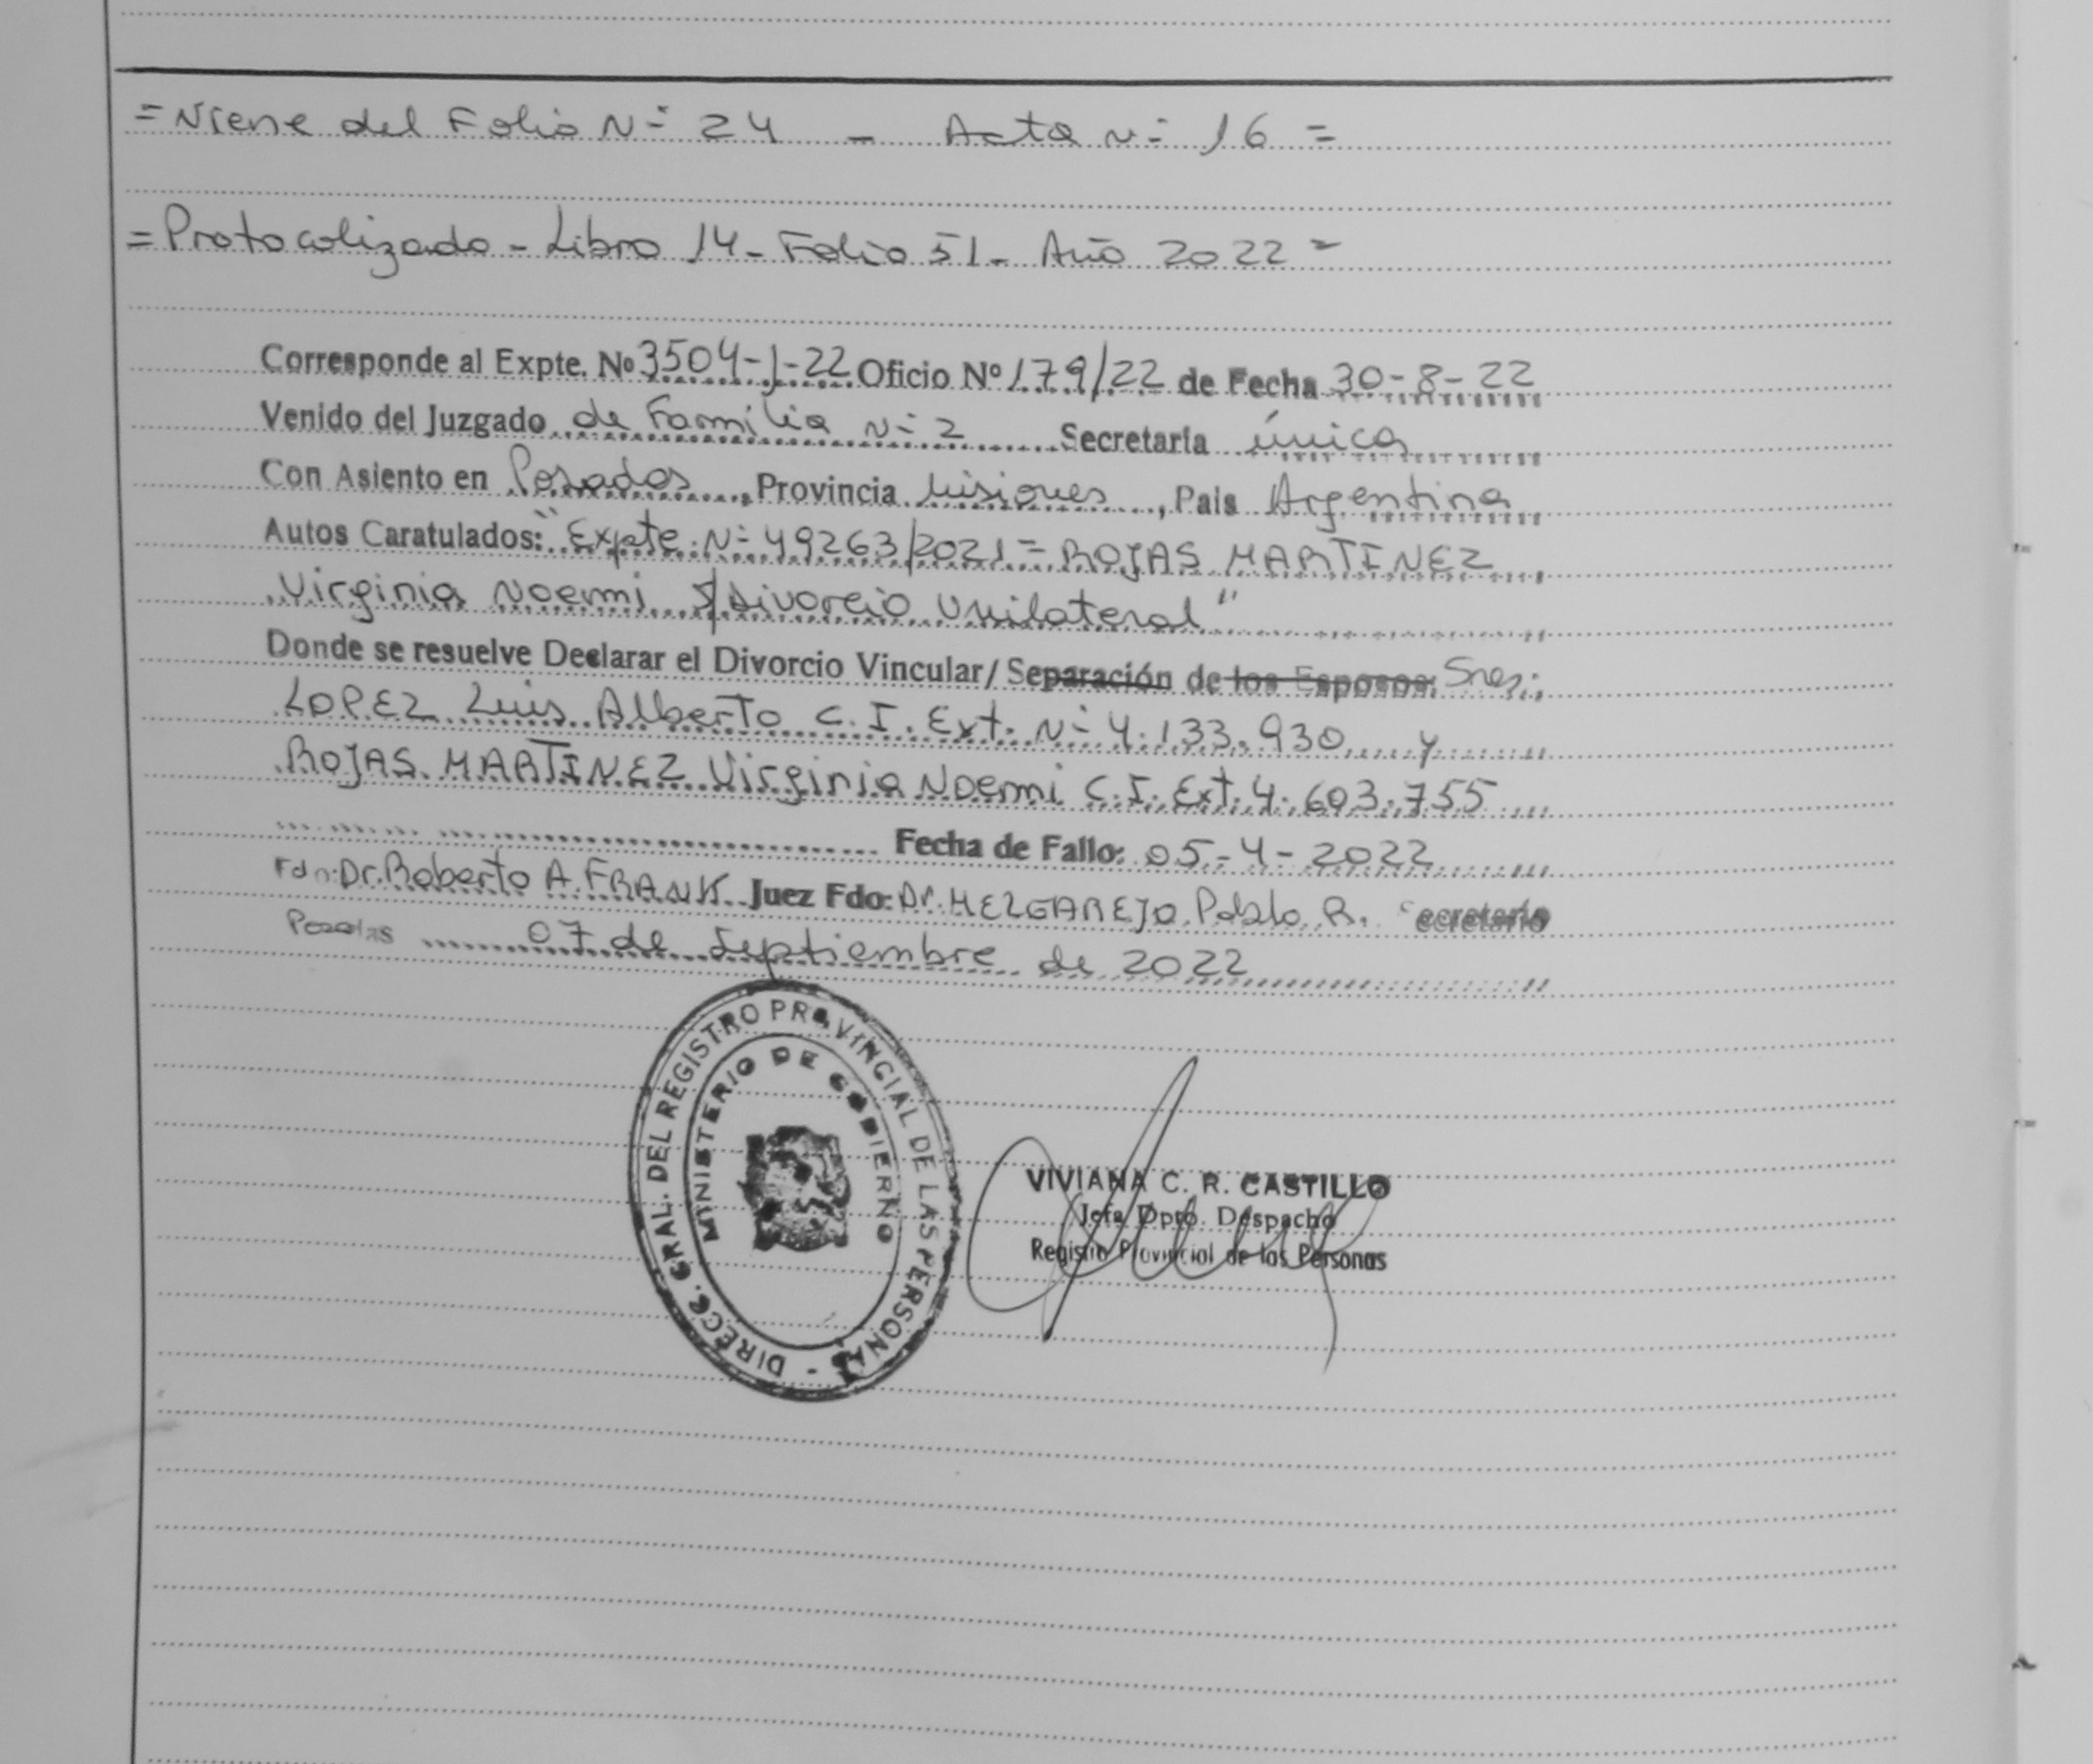 = Viene del Folio Nº 24 - Acta Nº 16 =
= Protocolizado - Libro 14 - Folio 51 - Año 2022 =
Corresponde al Expte. Nº 3504-J-22 Oficio Nº 179/22 de Fecha 30-8-22
Venido del Juzgado de Familia Nº 2 Secretaría única
Con Asiento en Posadas, Provincia Misiones, País Argentina
Autos Caratulados: "Expte. Nº 49263/2021 = ROJAS MARTINEZ
Virginia Noemi S/ Divorcio Unilateral"
Donde se resuelve Declarar el Divorcio Vincular/ Separación de los Esposos: Sres.:
LOPEZ Luis Alberto C.I. Ext. Nº 4.133.930 y
ROJAS MARTINEZ Virginia Noemi C.I. Ext. 4.603.755
Fecha de Fallo: 05-4-2022
Fdo: Dr. Roberto A. FRANK Juez Fdo: Dr. MELGAREJO Pablo R. Secretario
Posadas 07 de Septiembre de 2022
DIRECC. GRAL. DEL REGISTRO PROVINCIAL DE LAS PERSONAS -
MINISTERIO DE GOBIERNO
VIVIANA C. R. CASTILLO
Jefa Dpto. Despacho
Registro Provincial de las Personas